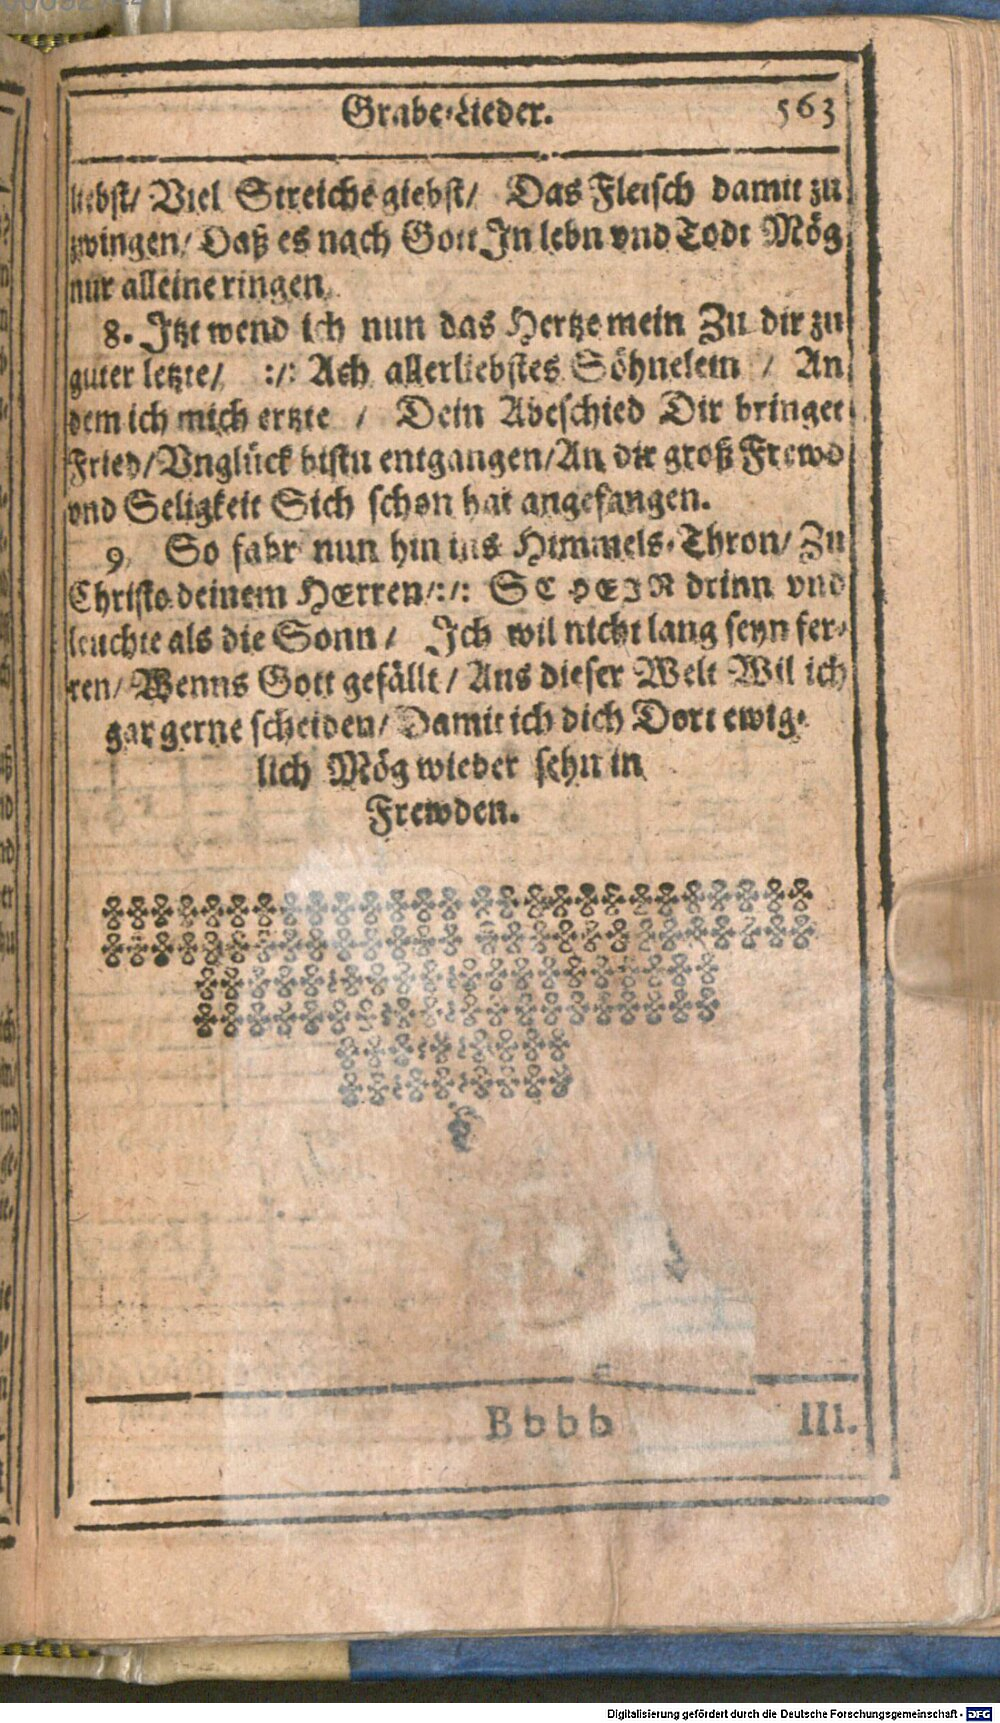 Grabe-Lieder. 563
liebst/ Viel Streiche giebst/ Das Fleisch damit zu
zwingen/ Daß es nach Gott In lebn vnd Todt Mög
nur alleine ringen.
8. Jtzt wend ich nun das Hertze mein Zu dir zu
guter letzte/ :/: Ach allerliebstes Söhnelein / An
dem ich mich ertzte / Dein Abeschied Dir bringet
Fried/ Vnglück bistu entgangen/ An dir groß Frewd
vnd Seligkeit Sich schon hat angefangen.
9. So fahr nun hin ins Himmels-Thron/ Zu
Christo deinem HErren/:/: drinn vnd
leuchte als die Sonn/ Jch wil nicht lang seyn fer-
ren/ Wenns Gott gefällt/ Aus dieser Welt Wil ich
gar gerne scheiden/ Damit ich dich Dort ewig-
lich Mög wieder sehn in
Frewden.
Bbbb III.
Digitalisierung gefördert durch die Deutsche Forschungsgemeinschaft - DFG